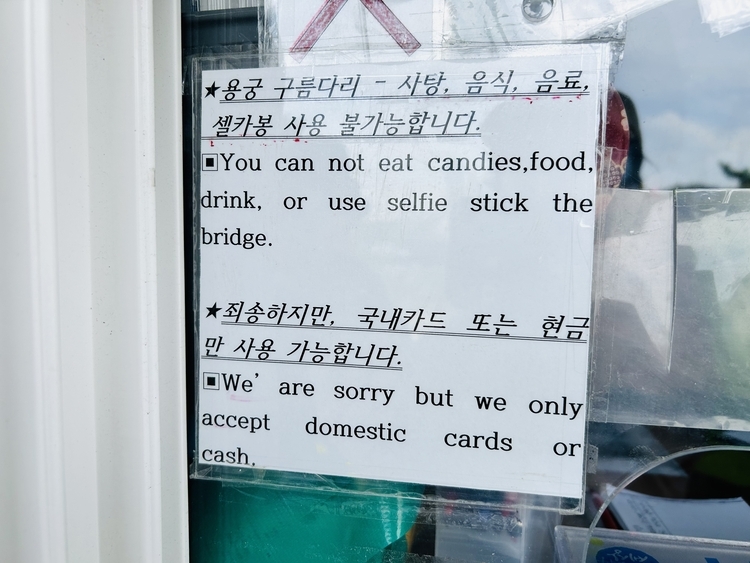 ★용궁 구름다리 - 사탕, 음식, 음료,
셀카봉 사용 불가능합니다.
▣You can not eat candies,food,
drink, or use selfie stick the
bridge.
★죄송하지만, 국내카드 또는 현금
만 사용 가능합니다.
▣We’ are sorry but we only
accept domestic cards or
cash.